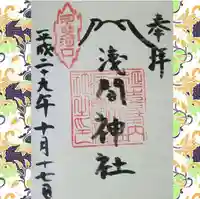 奉拝
浅間神社
平成二十九年十月十七日